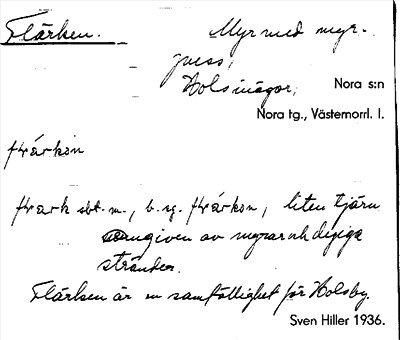 Flärken.
Myr med myr-
guss,
Holsmågor,
Nora s:n
Nora tg., Västernorrl. l.
flärkơn
flark sbt. m., b. sg. flärkơn, liten tjärn
omgiven av myrar och dyiga
stränder.
Flärken är en samfällighet för Holsby.
Sven Hiller 1936.